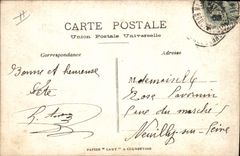 CARTE POSTALE
Union Postale Universelle
Correspondance
Adresse
Bonne et heureuse
fête
Mademoiselle
Rose
Rue du marché
Neuilly-sur-Seine
PAPIER "LUNY" À